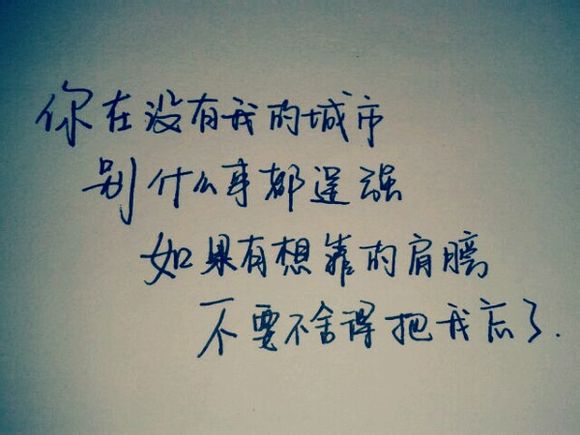 你在没有我的城市
别什么事都逞强
如果有想靠的肩膀
不要不舍得把我忘了.